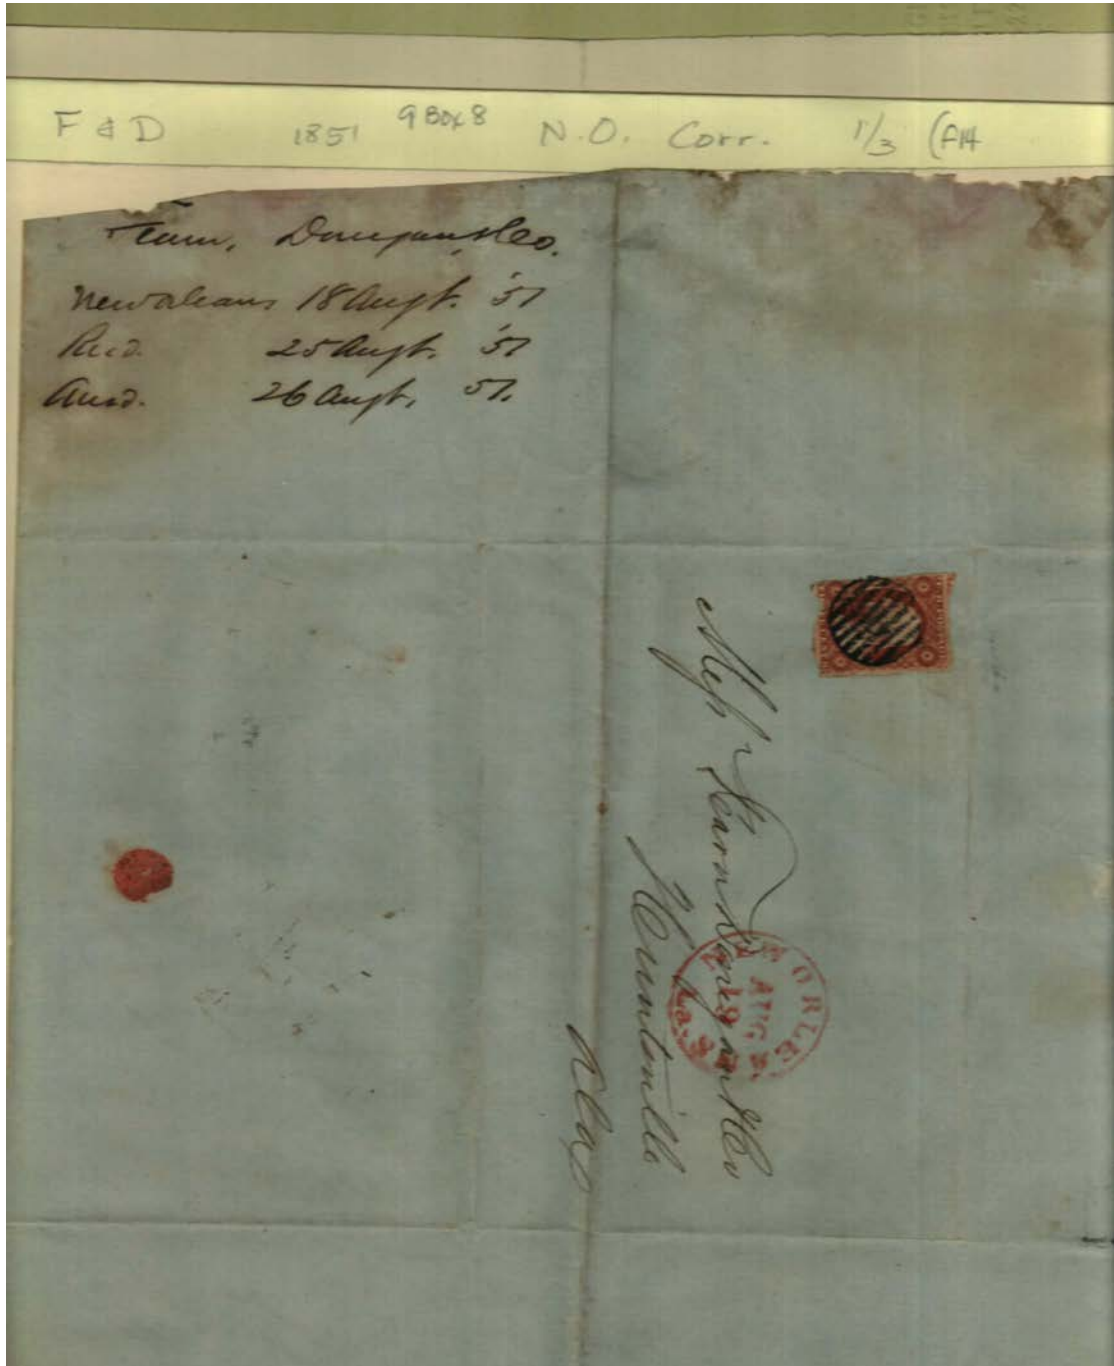 F & D 1851 9 Box 8 N.O. Corr. 1/3 (F14
Fearn, Donegan, & Co.
New Orleans 18 Augt. '51
Recd. 25 Augt. '51
Ansd. 26 Augt. 51.
Messrs Fearn Donegan & Co
Huntsville
Ala
ORLE
AUG
19
La.